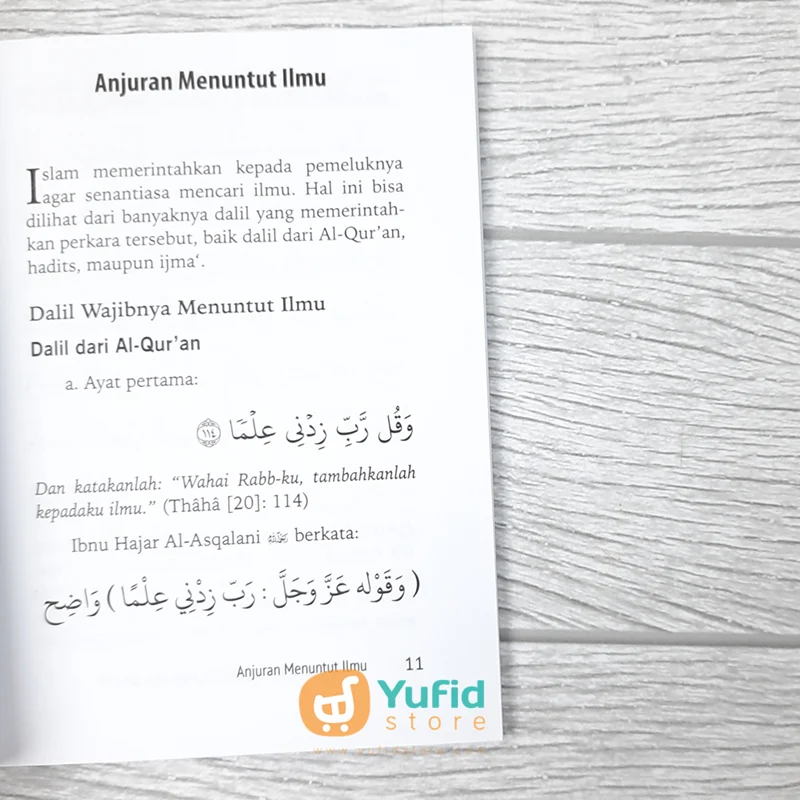 Anjuran Menuntut Ilmu
Islam memerintahkan kepada pemeluknya
agar senantiasa mencari ilmu. Hal ini bisa
dilihat dari banyaknya dalil yang memerintah-
kan perkara tersebut, baik dalil dari Al-Qur'an,
hadits, maupun ijma‘.
Dalil Wajibnya Menuntut Ilmu
Dalil dari Al-Qur'an
a. Ayat pertama:
وَقُل رَّبِّ زِدْنِي عِلْمًا ١١٤
Dan katakanlah: “Wahai Rabb-ku, tambahkanlah
kepadaku ilmu.” (Thâhâ [20]: 114)
Ibnu Hajar Al-Asqalani berkata:
( وَقَوْله عَزَّ وَجَلَّ : رَبّ زِدْنِي عِلْمًا ) وَاضِح
Anjuran Menuntut Ilmu 11
Yufid
store
www.yufidstore.com